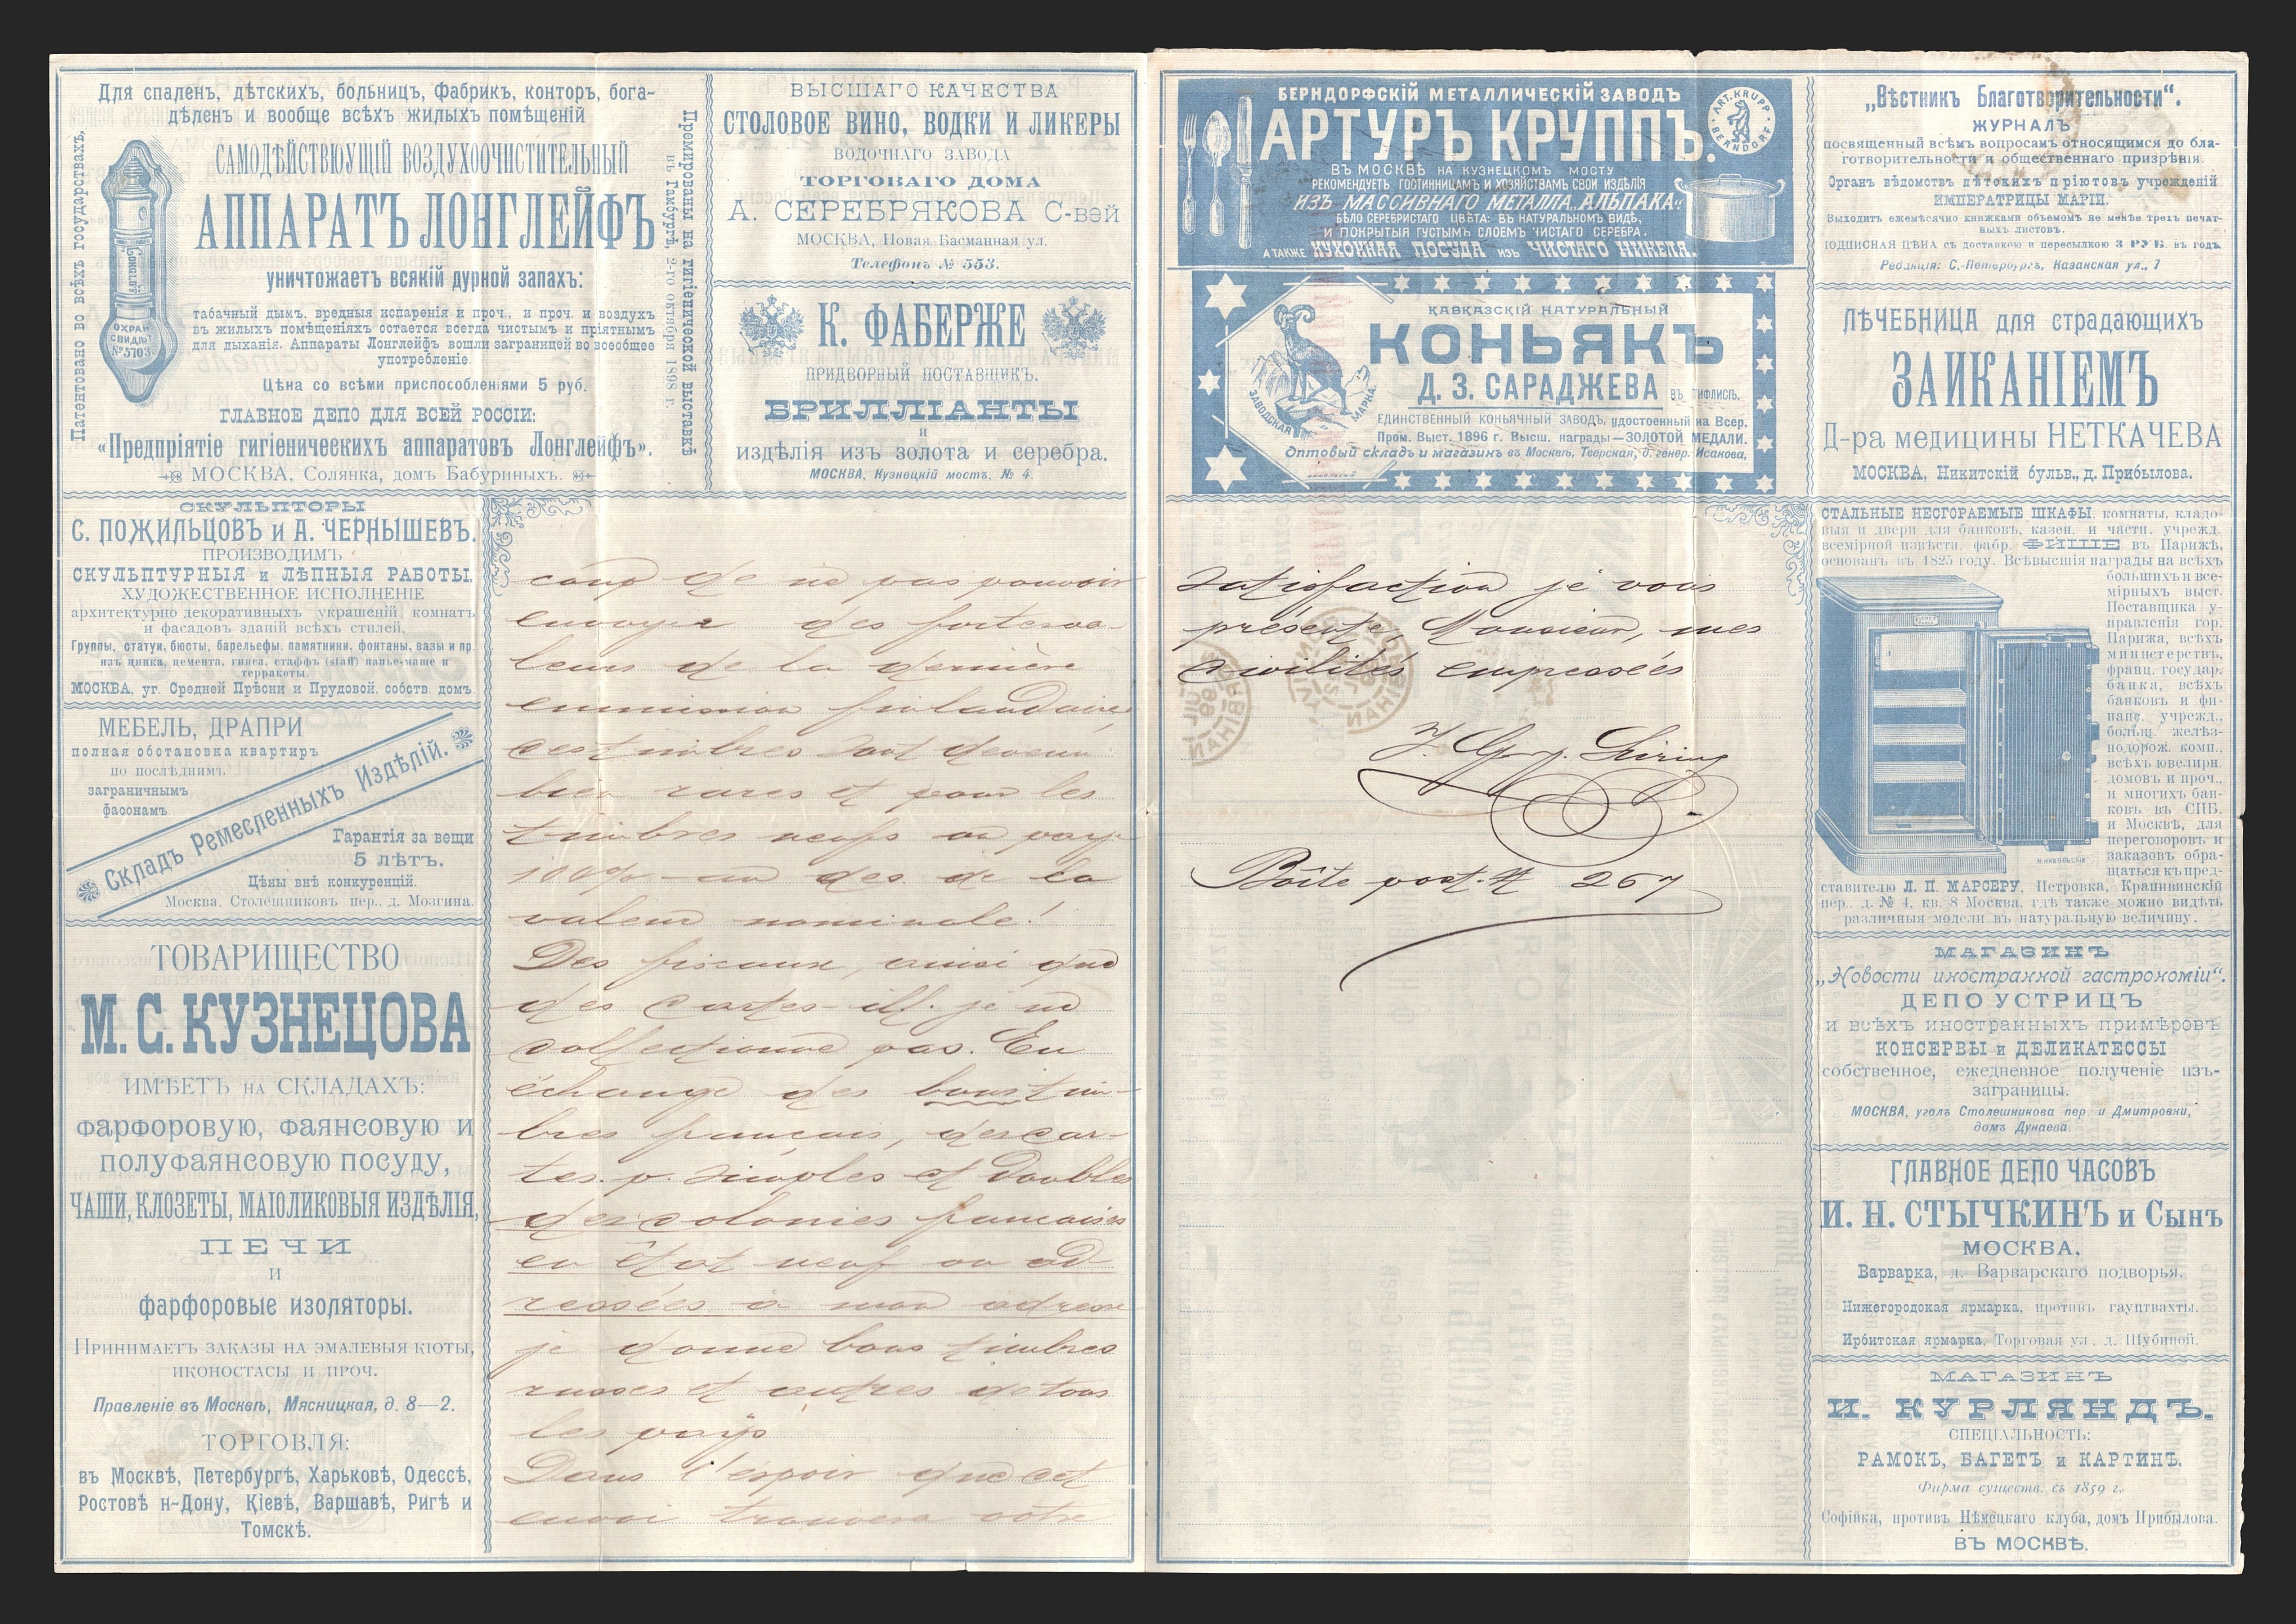 Для спаленъ, дѣтскихъ, больницъ, фабрикъ, конторъ, бога-
дѣленъ и вообще всѣхъ жилыхъ помѣщеній
Патентовано во всѣхъ государствахъ.
САМОДѢЙСТВУЮЩІЙ ВОЗДУХООЧИСТИТЕЛЬНЫЙ
АППАРАТЪ ЛОНГЛЕЙФЪ
уничтожаетъ всякій дурной запахъ:
табачный дымъ, вредныя испаренія и проч. и проч. и воздухъ
въ жилыхъ помѣщеніяхъ остается всегда чистымъ и пріятнымъ
для дыханія. Аппараты Лонглейфъ вошли заграницей во всеобщее
употребленіе.
ОХРАН
СВИДѢТ
№ 5703
Цѣна со всѣми приспособленіями 5 руб.
ГЛАВНОЕ ДЕПО ДЛЯ ВСЕЙ РОССІИ:
«Предпріятіе гигіеническихъ аппаратовъ Лонглейфъ».
МОСКВА, Солянка, домъ Бабуриныхъ.
Премированы на гигіенической выставкѣ
въ Гамбургѣ, 2-го октября 1898 г.
ВЫСШАГО КАЧЕСТВА
СТОЛОВОЕ ВИНО, ВОДКИ И ЛИКЕРЫ
ВОДОЧНАГО ЗАВОДА
ТОРГОВАГО ДОМА
А. СЕРЕБРЯКОВА С-вей
МОСКВА, Новая Басманная ул.
Телефонъ № 553.
К. ФАБЕРЖЕ
ПРИДВОРНЫЙ ПОСТАВЩИКЪ.
БРИЛЛІАНТЫ
и
издѣлія изъ золота и серебра.
МОСКВА, Кузнецкій мостъ, № 4.
СКУЛЬПТОРЫ
С. ПОЖИЛЬЦОВЪ и А. ЧЕРНЫШЕВЪ.
ПРОИЗВОДИМЪ
СКУЛЬПТУРНЫЯ и ЛѢПНЫЯ РАБОТЫ.
ХУДОЖЕСТВЕННОЕ ИСПОЛНЕНІЕ
архитектурно декоративныхъ украшеній комнатъ
и фасадовъ зданій всѣхъ стилей.
Группы, статуи, бюсты, барельефы, памятники, фонтаны, вазы и пр.
изъ цинка, цемента, гипса, стаффъ (staff) папье-маше и
терракоты.
МОСКВА, уг. Средней Прѣсни и Прудовой, собств. домъ.
МЕБЕЛЬ, ДРАПРИ
полная обстановка квартиръ
по послѣднимъ
заграничнымъ
фасонамъ
Складъ Ремесленныхъ Издѣлій.
Гарантія за вещи
5 ЛѢТЪ.
Цѣны внѣ конкуренцій.
Москва, Столешниковъ пер., д. Мозгина.
ТОВАРИЩЕСТВО
М. С. КУЗНЕЦОВА
ИМѢЕТЪ НА СКЛАДАХЪ:
ФАРФОРОВУЮ, ФАЯНСОВУЮ И
ПОЛУФАЯНСОВУЮ ПОСУДУ,
ЧАШИ, КЛОЗЕТЫ, МАІОЛИКОВЫЯ ИЗДѢЛІЯ,
ПЕЧИ
И
фарфоровые изоляторы.
ПРИНИМАЕТЪ ЗАКАЗЫ НА ЭМАЛЕВЫЯ КІОТЫ,
ИКОНОСТАСЫ И ПРОЧ.
Правленіе въ Москвѣ, Мясницкая, д. 8—2.
ТОРГОВЛЯ:
въ Москвѣ, Петербургѣ, Харьковѣ, Одессѣ,
Ростовѣ н-Дону, Кіевѣ, Варшавѣ, Ригѣ и
Томскѣ.
coup de ne pas pouvoir
envoyer des fortes va-
leurs de la dernière
emmission finlandaire
ces timbres sont devenu
bien rares et pour les
timbres neufs on paye
100% au des de la
valeur nominale!
Des fiscaux, ainsi que
des cartes-ill. je ne
collectionne pas. En
échange des bons tim-
bres francais, des car-
tes. p. simples et doubles
des colonies francaises
en état neuf ou ad
ressées à mon adresse
je donne bons timbres
russes et autres de tous
les pays
Dans l'espoir que cet
envoi trouvera votre
БЕРНДОРФСКІЙ МЕТАЛЛИЧЕСКІЙ ЗАВОДЪ
АРТУРЪ КРУППЪ.
ART. KRUPP
BERNDORF
ВЪ МОСКВѢ НА КУЗНЕЦКОМЪ МОСТУ
РЕКОМЕНДУЕТЪ ГОСТИННИЦАМЪ И ХОЗЯЙСТВАМЪ СВОИ ИЗДѢЛІЯ
ИЗЪ МАССИВНАГО МЕТАЛЛА „АЛЬПАКА“:
БѢЛО СЕРЕБРИСТАГО ЦВѢТА: ВЪ НАТУРАЛЬНОМЪ ВИДѢ,
И ПОКРЫТЫЯ ГУСТЫМЪ СЛОЕМЪ ЧИСТАГО СЕРЕБРА.
А ТАКЖЕ КУХОННАЯ ПОСУДА ИЗЪ ЧИСТАГО НИКЕЛЯ.
КАВКАЗСКІЙ НАТУРАЛЬНЫЙ
КОНЬЯКЪ
Д. З. САРАДЖЕВА ВЪ ТИФЛИСѢ.
ЗАВОДСКАЯ МАРКА
ЕДИНСТВЕННЫЙ КОНЬЯЧНЫЙ ЗАВОДЪ, удостоенный на Всер.
Пром. Выст. 1896 г. Высш. награды—ЗОЛОТОЙ МЕДАЛИ.
Оптовый складъ и магазинъ въ Москвѣ, Тверская, д. генер. Исакова,
satisfaction je vous
présente, Monsieur, mes
civilités empressées
Boîte post. N 267
„Вѣстникъ Благотворительности“.
ЖУРНАЛЪ
посвященный всѣмъ вопросамъ относящимся до бла-
готворительности и общественнаго призрѣнія.
Органъ вѣдомствъ дѣтскихъ пріютовъ учрежденій
ИМПЕРАТРИЦЫ МАРІИ.
Выходитъ ежемѣсячно книжками объемомъ не менѣе трехъ печат-
ныхъ листовъ.
ПОДПИСНАЯ ЦѢНА съ доставкою и пересылкою 3 РУБ. въ годъ
Редакція: С.-Петербургъ, Казанская ул., 7
ЛѢЧЕБНИЦА для страдающихъ
ЗАИКАНІЕМЪ
Д-ра медицины НЕТКАЧЕВА
МОСКВА, Никитскій бульв., д. Прибылова.
СТАЛЬНЫЕ НЕСГОРАЕМЫЕ ШКАФЫ, комнаты, кладо-
выя и двери для банковъ, казен. и частн. учрежд.
всемірной извѣстн. фабр. ФИШЕ въ Парижѣ,
основанъ въ 1825 году. Всѣ высшія награды на всѣхъ
большихъ и все-
мірныхъ выст.
Поставщика у-
правленія гор.
Парижа, всѣхъ
министерствъ,
франц. государ.
банка, всѣхъ
банковъ и фи-
нанс. учрежд.,
больш. желѣз-
нодорож. комп.,
всѣхъ ювелирн.
домовъ и проч.,
и многихъ бан-
ковъ въ СПБ.
и Москвѣ, для
переговоровъ и
заказовъ обра-
щаться къ пред-
ставителю Л. П. МАРСЕРУ, Петровка, Крапивинскій
пер., д. № 4, кв. 8 Москва, гдѣ также можно видѣть
различныя модели въ натуральную величину.
МАГАЗИНЪ
„Новости иностранной гастрономіи“.
ДЕПО УСТРИЦЪ
и всѣхъ иностранныхъ примѣровъ
КОНСЕРВЫ и ДЕЛИКАТЕССЫ
собственное, ежедневное полученіе изъ-
заграницы.
МОСКВА, уголъ Столешникова пер. и Дмитровки,
домъ Дунаева.
ГЛАВНОЕ ДЕПО ЧАСОВЪ
И. Н. СТЫЧКИНЪ и Сынъ
МОСКВА,
Варварка, д. Варварскаго подворья.
Нижегородская ярмарка, противъ гауптвахты.
Ирбитская ярмарка, Торговая ул., д. Шубиной.
МАГАЗИНЪ
И. КУРЛЯНДЪ.
СПЕЦІАЛЬНОСТЬ:
РАМОКЪ, БАГЕТЪ и КАРТИНЪ.
Фирма существ. съ 1859 г.
Софійка, противъ Нѣмецкаго клуба, домъ Прибылова.
ВЪ МОСКВѢ.